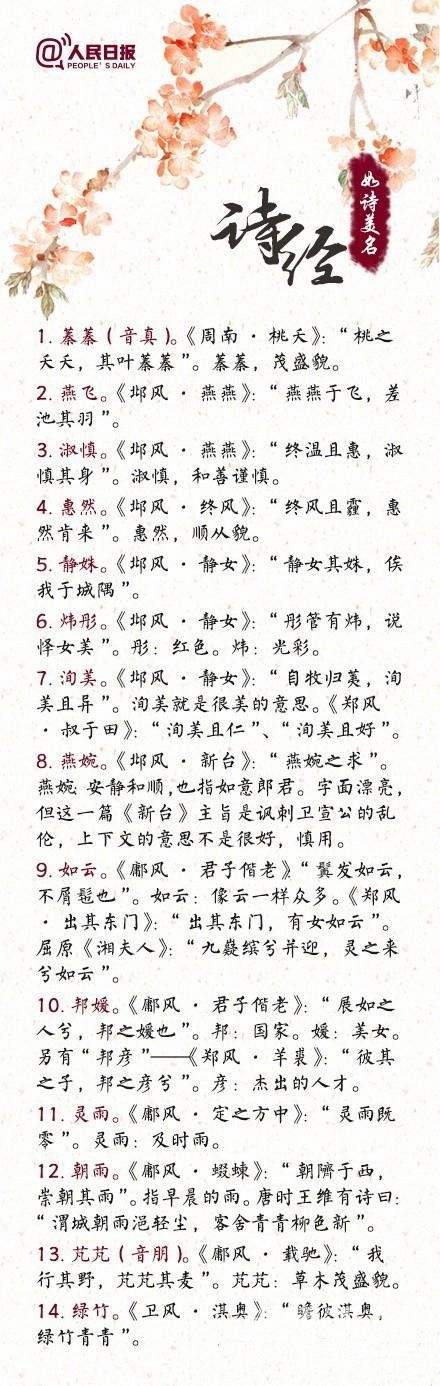 @人民日报
PEOPLE'S DAILY
诗经
如诗美名
1. 蓁蓁（音真）。《周南 · 桃夭》：“桃之
夭夭，其叶蓁蓁”。蓁蓁，茂盛貌。
2. 燕飞。《邶风 · 燕燕》：“燕燕于飞，差
池其羽”。
3. 淑慎。《邶风 · 燕燕》：“终温且惠，淑
慎其身”。淑慎，和善谨慎。
4. 惠然。《邶风 · 终风》：“终风且霾，惠
然肯来”。惠然，顺从貌。
5. 静姝。《邶风 · 静女》：“静女其姝，俟
我于城隅”。
6. 炜彤。《邶风 · 静女》：“彤管有炜，说
怿女美”。彤：红色。炜：光彩。
7. 洵美。《邶风 · 静女》：“自牧归荑，洵
美且异”。洵美就是很美的意思。《郑风
· 叔于田》：“洵美且仁”、“洵美且好”。
8. 燕婉。《邶风 · 新台》：“燕婉之求”。
燕婉 安静和顺，也指如意郎君。字面漂亮，
但这一篇《新台》主旨是讽刺卫宣公的乱
伦，上下文的意思不是很好，慎用。
9. 如云。《鄘风 · 君子偕老》“鬒发如云，
不屑髢也”。如云：像云一样众多。《郑风
· 出其东门》：“出其东门，有女如云”。
屈原《湘夫人》：“九嶷缤兮并迎，灵之来
兮如云”。
10. 邦媛。《鄘风 · 君子偕老》：“展如之
人兮，邦之媛也”。邦：国家。媛：美女。
另有“邦彦”——《郑风 · 羊裘》：“彼其
之子，邦之彦兮”。彦：杰出的人才。
11. 灵雨。《鄘风 · 定之方中》：“灵雨既
零”。灵雨：及时雨。
12. 朝雨。《鄘风 · 蝃蝀》：“朝隮于西，
崇朝其雨”。指早晨的雨。唐时王维有诗曰：
“渭城朝雨浥轻尘，客舍青青柳色新”。
13. 芃芃（音朋）。《鄘风 · 载驰》：“我
行其野，芃芃其麦”。芃芃：草木茂盛貌。
14. 绿竹。《卫风 · 淇奥》：“瞻彼淇奥，
绿竹青青”。